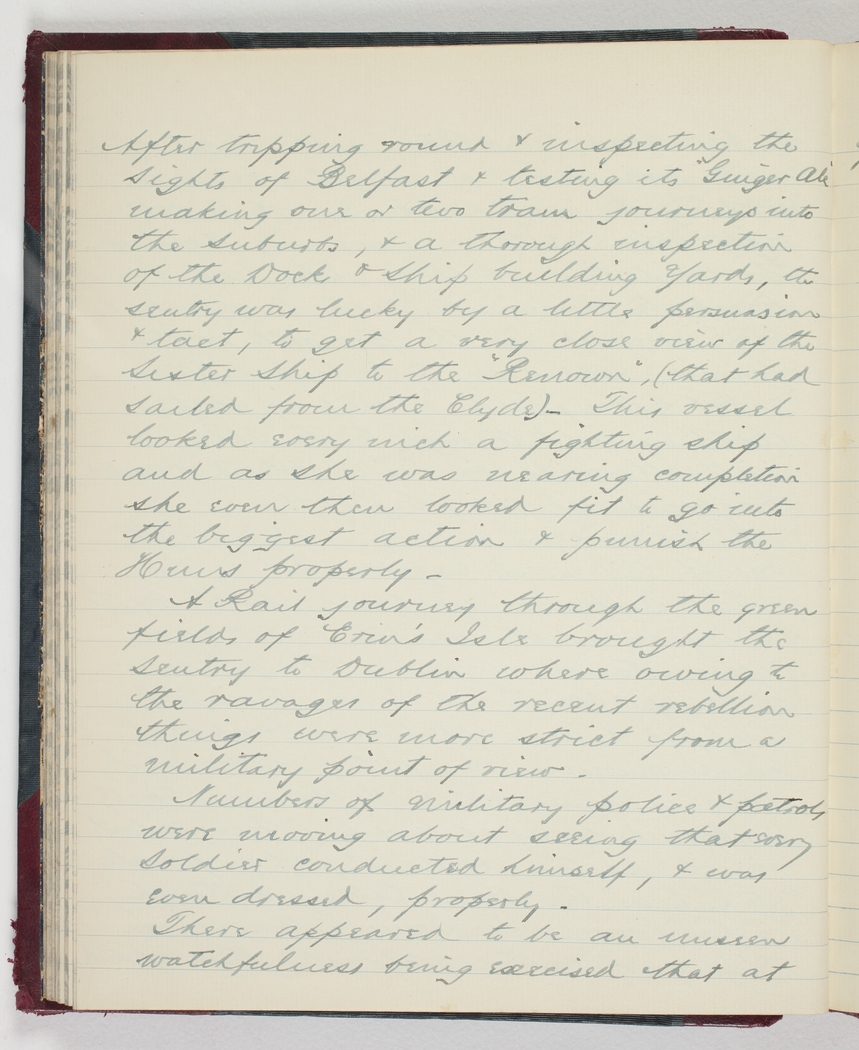 After tripping round & inspecting the
sights of Belfast & testing its "Ginger Ale
making one or two tram journeys into
the suburbs, & a thorough inspection
of the Dock & Ship building Yards, the
sentry was lucky by a little persuasion
& tact, to get a very close view of the
Sister Ship to the "Renown", (that had
sailed from the Clyde) – This vessel
looked every inch a fighting ship
and as she was nearing completion
she even then looked fit to go into
the biggest action & punish the
Huns properly –
A Rail journey through the green
fields of Erin's Isle brought the
Sentry to Dublin where owing to
the ravages of the recent rebellion
things were more strict from a
military point of view.
Numbers of military police & patrols
were moving about seeing that every
Soldier conducted himself, & was
even dressed, properly.
There appeared to be an unseen
watchfulness being exercised that at